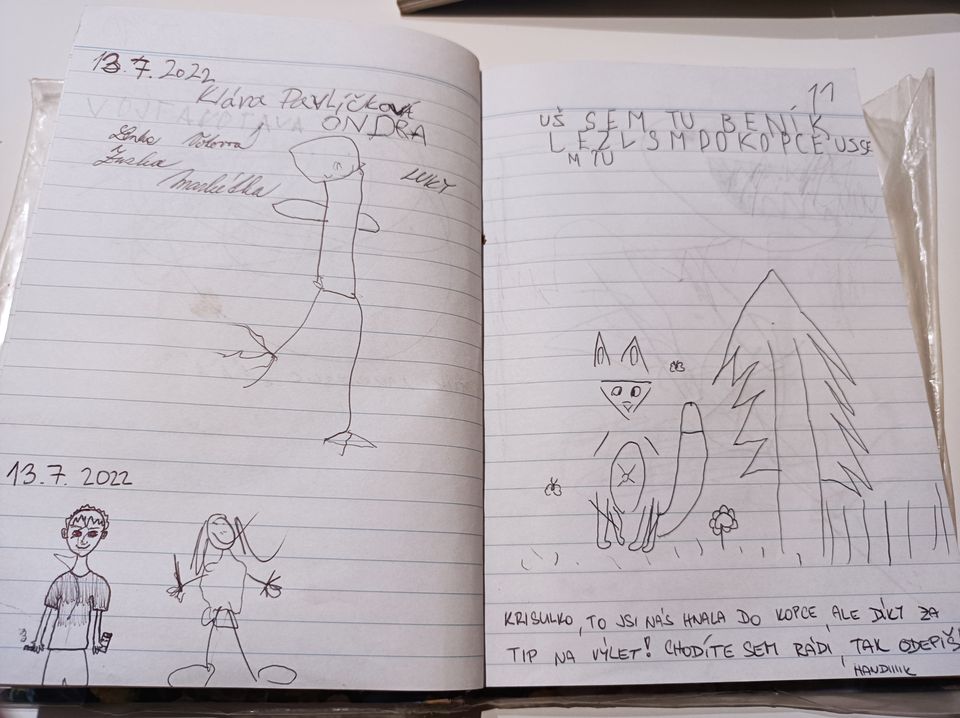 13.7.2022
Klára Pavlíčková
ONDRA
Lenka
LUKY
13.7.2022
11
UŠ SEM TU BENÍK
LEZLSMDOKOPCE USSE
M TU
KRISULKO, TO JSI NÁS HNALA DO KOPCE, ALE DÍKY ZA
TIP NA VÝLET! CHODÍTE SEM RÁDI, TAK ODEPIŠ
HANDIIIK